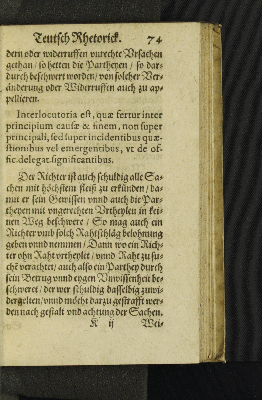 Teutsch Rhetorick. 74
dern oder widerruffen vnrechte Vrsachen
gethan / so hetten die Partheyen / so dar-
durch beschwert worden / von solcher Ver-
änderung oder Widerruffen auch zu ap-
pellieren.
Interlocutoria est, quæ fertur inter
principium causæ & finem, non super
principali, sed super incidentibus quæ-
stionibus vel emergentibus, vt de of-
fic. delegat. significantibus.
Der Richter ist auch schuldig alle Sa-
chen mit höchstem fleiß zu erkünden / da-
mit er sein Gewissen vnnd auch die Par-
theyen mit vngerechten Vrtheylen in kei-
nen Weg beschwere / So mag auch ein
Richter vmb solch Rahtschläg belohnung
geben vnnd nemmen / Dann wo ein Rich-
ter ohn Raht vrtheylet / vnnd Raht zu su-
chē verachtet / auch also ein Parthey durch
sein Betrug vnnd eygen Vnwissenheit be-
schweret / der wer schuldig dasselbig zuwi-
dergelten / vnnd möcht darzu gestrafft wer-
den nach gestalt vnd achtung der Sachen.
K ij Wei-